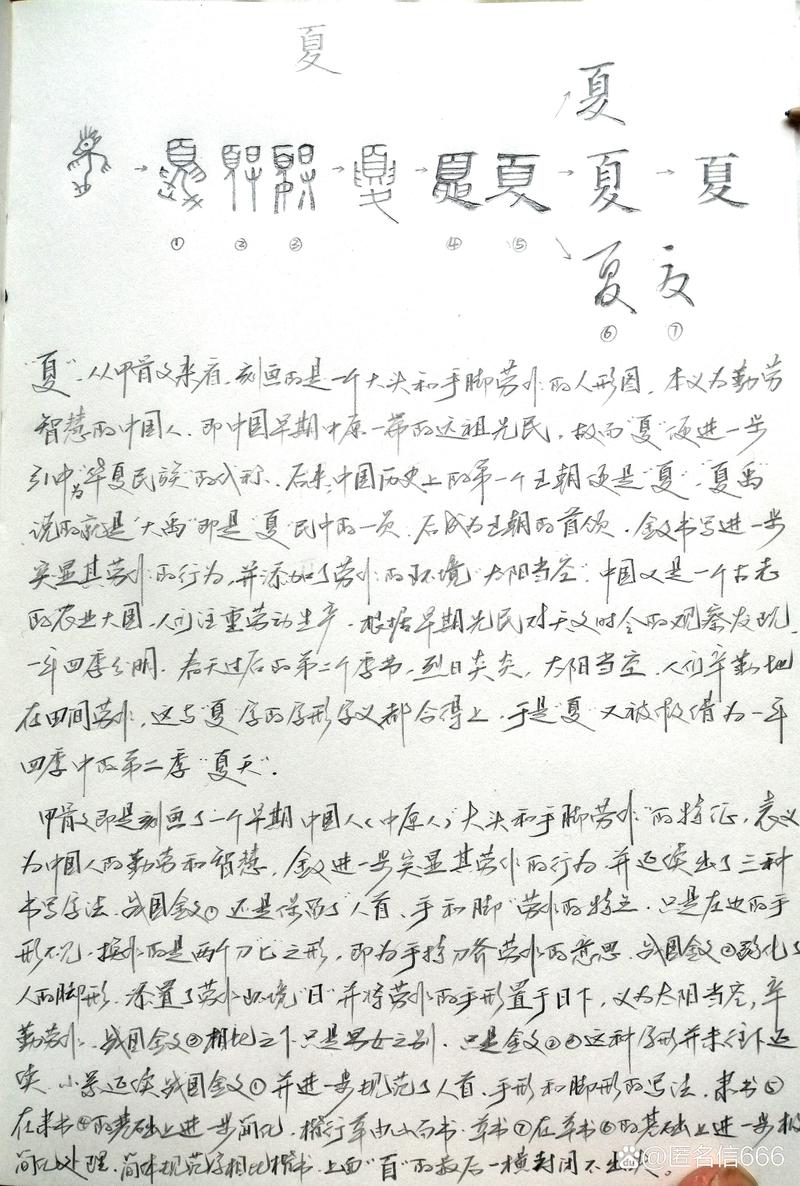 夏
夏
→ → → → 夏 → 夏
① ② ③ ④ ⑤
夏
⑥ ⑦
"夏"，从甲骨文来看，刻画的是一个大头和手脚劳作的人形图，本义为勤劳
智慧的中国人，即中国早期中原一带的远祖先民，故而"夏"便进一步
引申为"华夏民族"的代称。后来，中国历史上的第一个王朝便是"夏"，夏禹
说的就是"大禹"即是"夏"民中的一员，后成为王朝的首领。金文书写进一步
突显其劳作的行为，并添加了劳作的环境"太阳当空"，中国又是一个古老
的农业大国，人们注重劳动生产，根据早期先民对天文时令的观察发现，
一年四季分明，春天过后的第二个季节，烈日炎炎，太阳当空，人们辛勤地
在田间劳作，这与"夏"字的字形字义都合得上，于是"夏"又被假借为一年
四季中的第二季"夏天"。
甲骨文即是刻画了一个早期中国人（中原人）"大头和手脚劳作"的特征，表义
为中国人的勤劳和智慧，金文进一步突显其劳作的行为，并延续出了三种
书写字法，战国金文①还是保留了"人首、手和脚"劳作的特点，只是左边的手
形不见，换作的是两个"匕"之形，即为手持刀斧劳作的意思，战国金文②弱化了
人的脚形，添置了劳作环境"日"并将劳作的手形置于日下，义为太阳当空，辛
勤劳作，战国金文③相比之下只是男女之别，只是金文②③这种字形并未往下延
续，小篆延续战国金文①并进一步规范了人首、手形和脚形的写法，隶书⑤
在隶书④的基础上进一步简化，楷行草由此而书，草书⑦在草书⑥的基础上进一步
简化处理，简体规范字相比楷书，上面"百"的最后一横封闭不出头。
@匿名信666